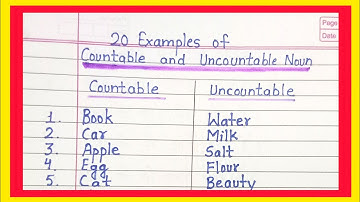 Page
Date
20 Examples of
Countable and Uncountable Noun
Countable Uncountable
1. Book Water
2. Car Milk
3. Apple Salt
4. Egg Flour
5. Cat Beauty